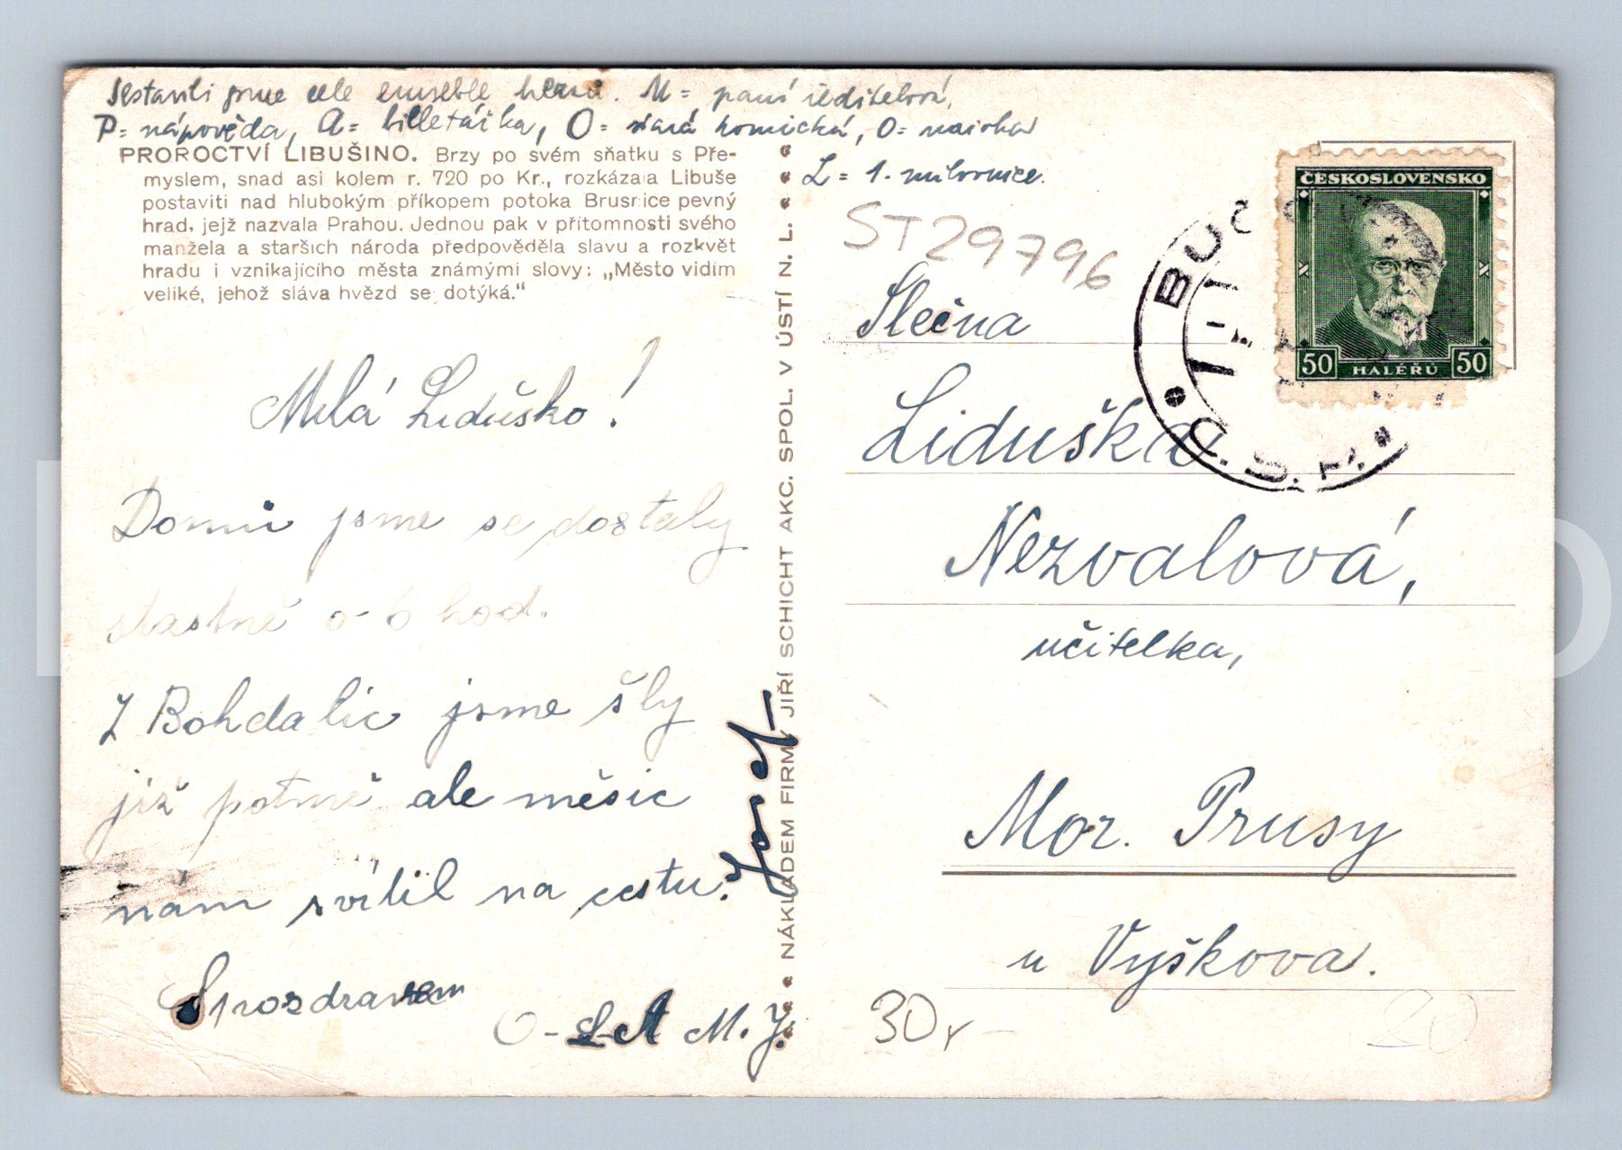 Sestavili jsme cele enseble herců. M = paní ředitelová,
P = nápověda, A = billetářka, O = stará komická, O = naivka
L = 1. milovnice.
PROROCTVÍ LIBUŠINO. Brzy po svém sňatku s Pře-
myslem, snad asi kolem r. 720 po Kr., rozkázala Libuše
postaviti nad hlubokým příkopem potoka Brusnice pevný
hrad, jejž nazvala Prahou. Jednou pak v přítomnosti svého
manžela a starších národa předpověděla slavu a rozkvět
hradu i vznikajícího města známými slovy: „Město vidím
veliké, jehož sláva hvězd se dotýká.“
Milá Liduško!
Domů jsme se dostaly
šťastně o 6 hod.
Z Bohdalic jsme šly
již potmě ale měsíc
nám svítil na cestu.
S pozdravem
O-LA M. J.
Josef
NÁKLADEM FIRMY JIŘÍ SCHICHT AKC. SPOL. V ÚSTÍ N. L.
ST29796
Slečna
Liduška
Nezvalová,
učitelka,
Mor. Prusy
u Vyškova.
30,-
20
ČESKOSLOVENSKO
50 HALÉŘŮ 50